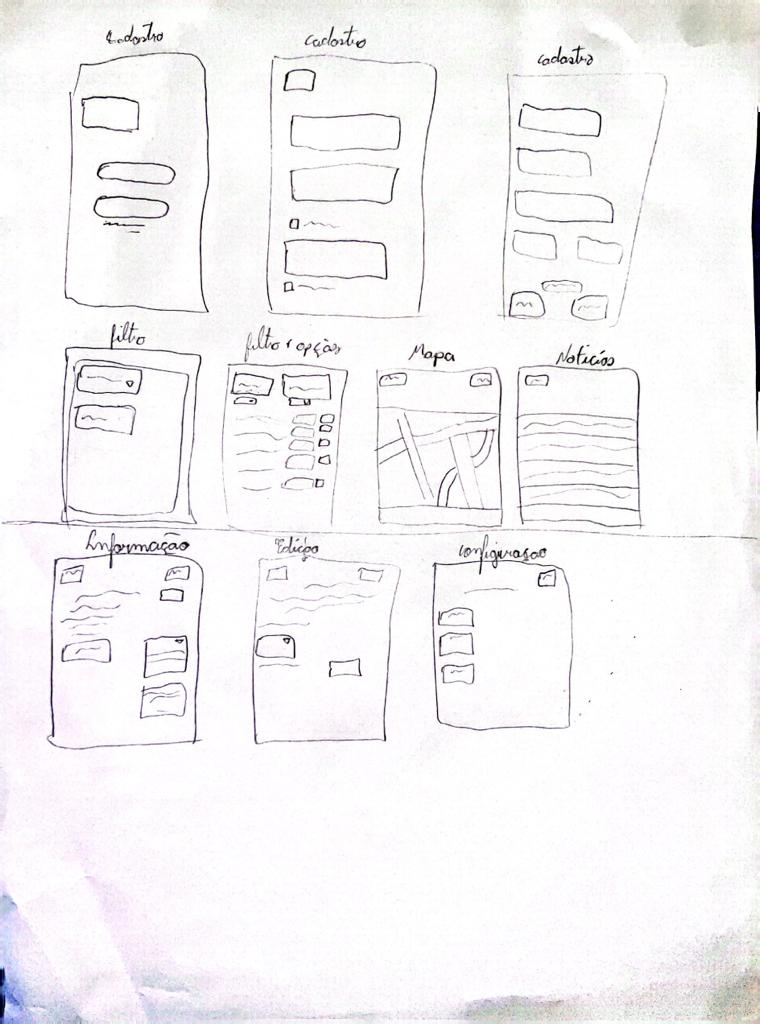 Cadastro
cadastro
cadastro
filtro
filtro + opções
Mapa
Notícias
Informação
Edição
configuração